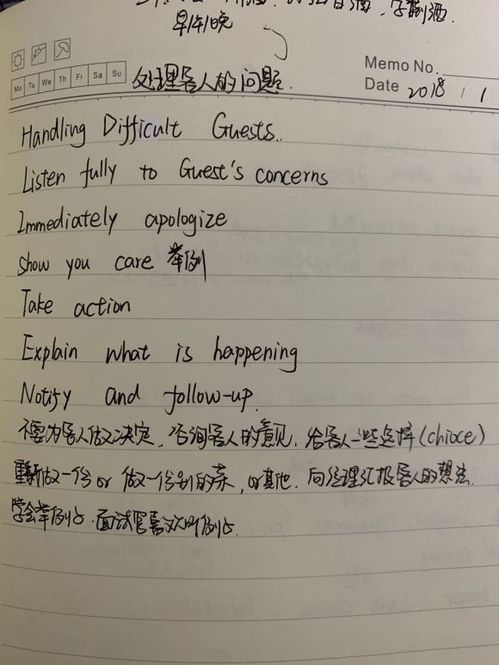 早/午/晚
Mo Tu We Th Fr Sa Su
处理客人的问题.
Memo No.
Date 2018 / 1
Handling Difficult Guests..
Listen fully to Guest's concerns
Immediately apologize
Show you care 举例
Take action
Explain what is happening
Notify and follow-up.
不要为客人做决定, 咨询客人的意见, 给客人一些选择(chioce)
重新做一份 or 做一份别的菜, or其他. 向经理汇报客人的想法.
学会举例子. 面试官喜欢听例子.